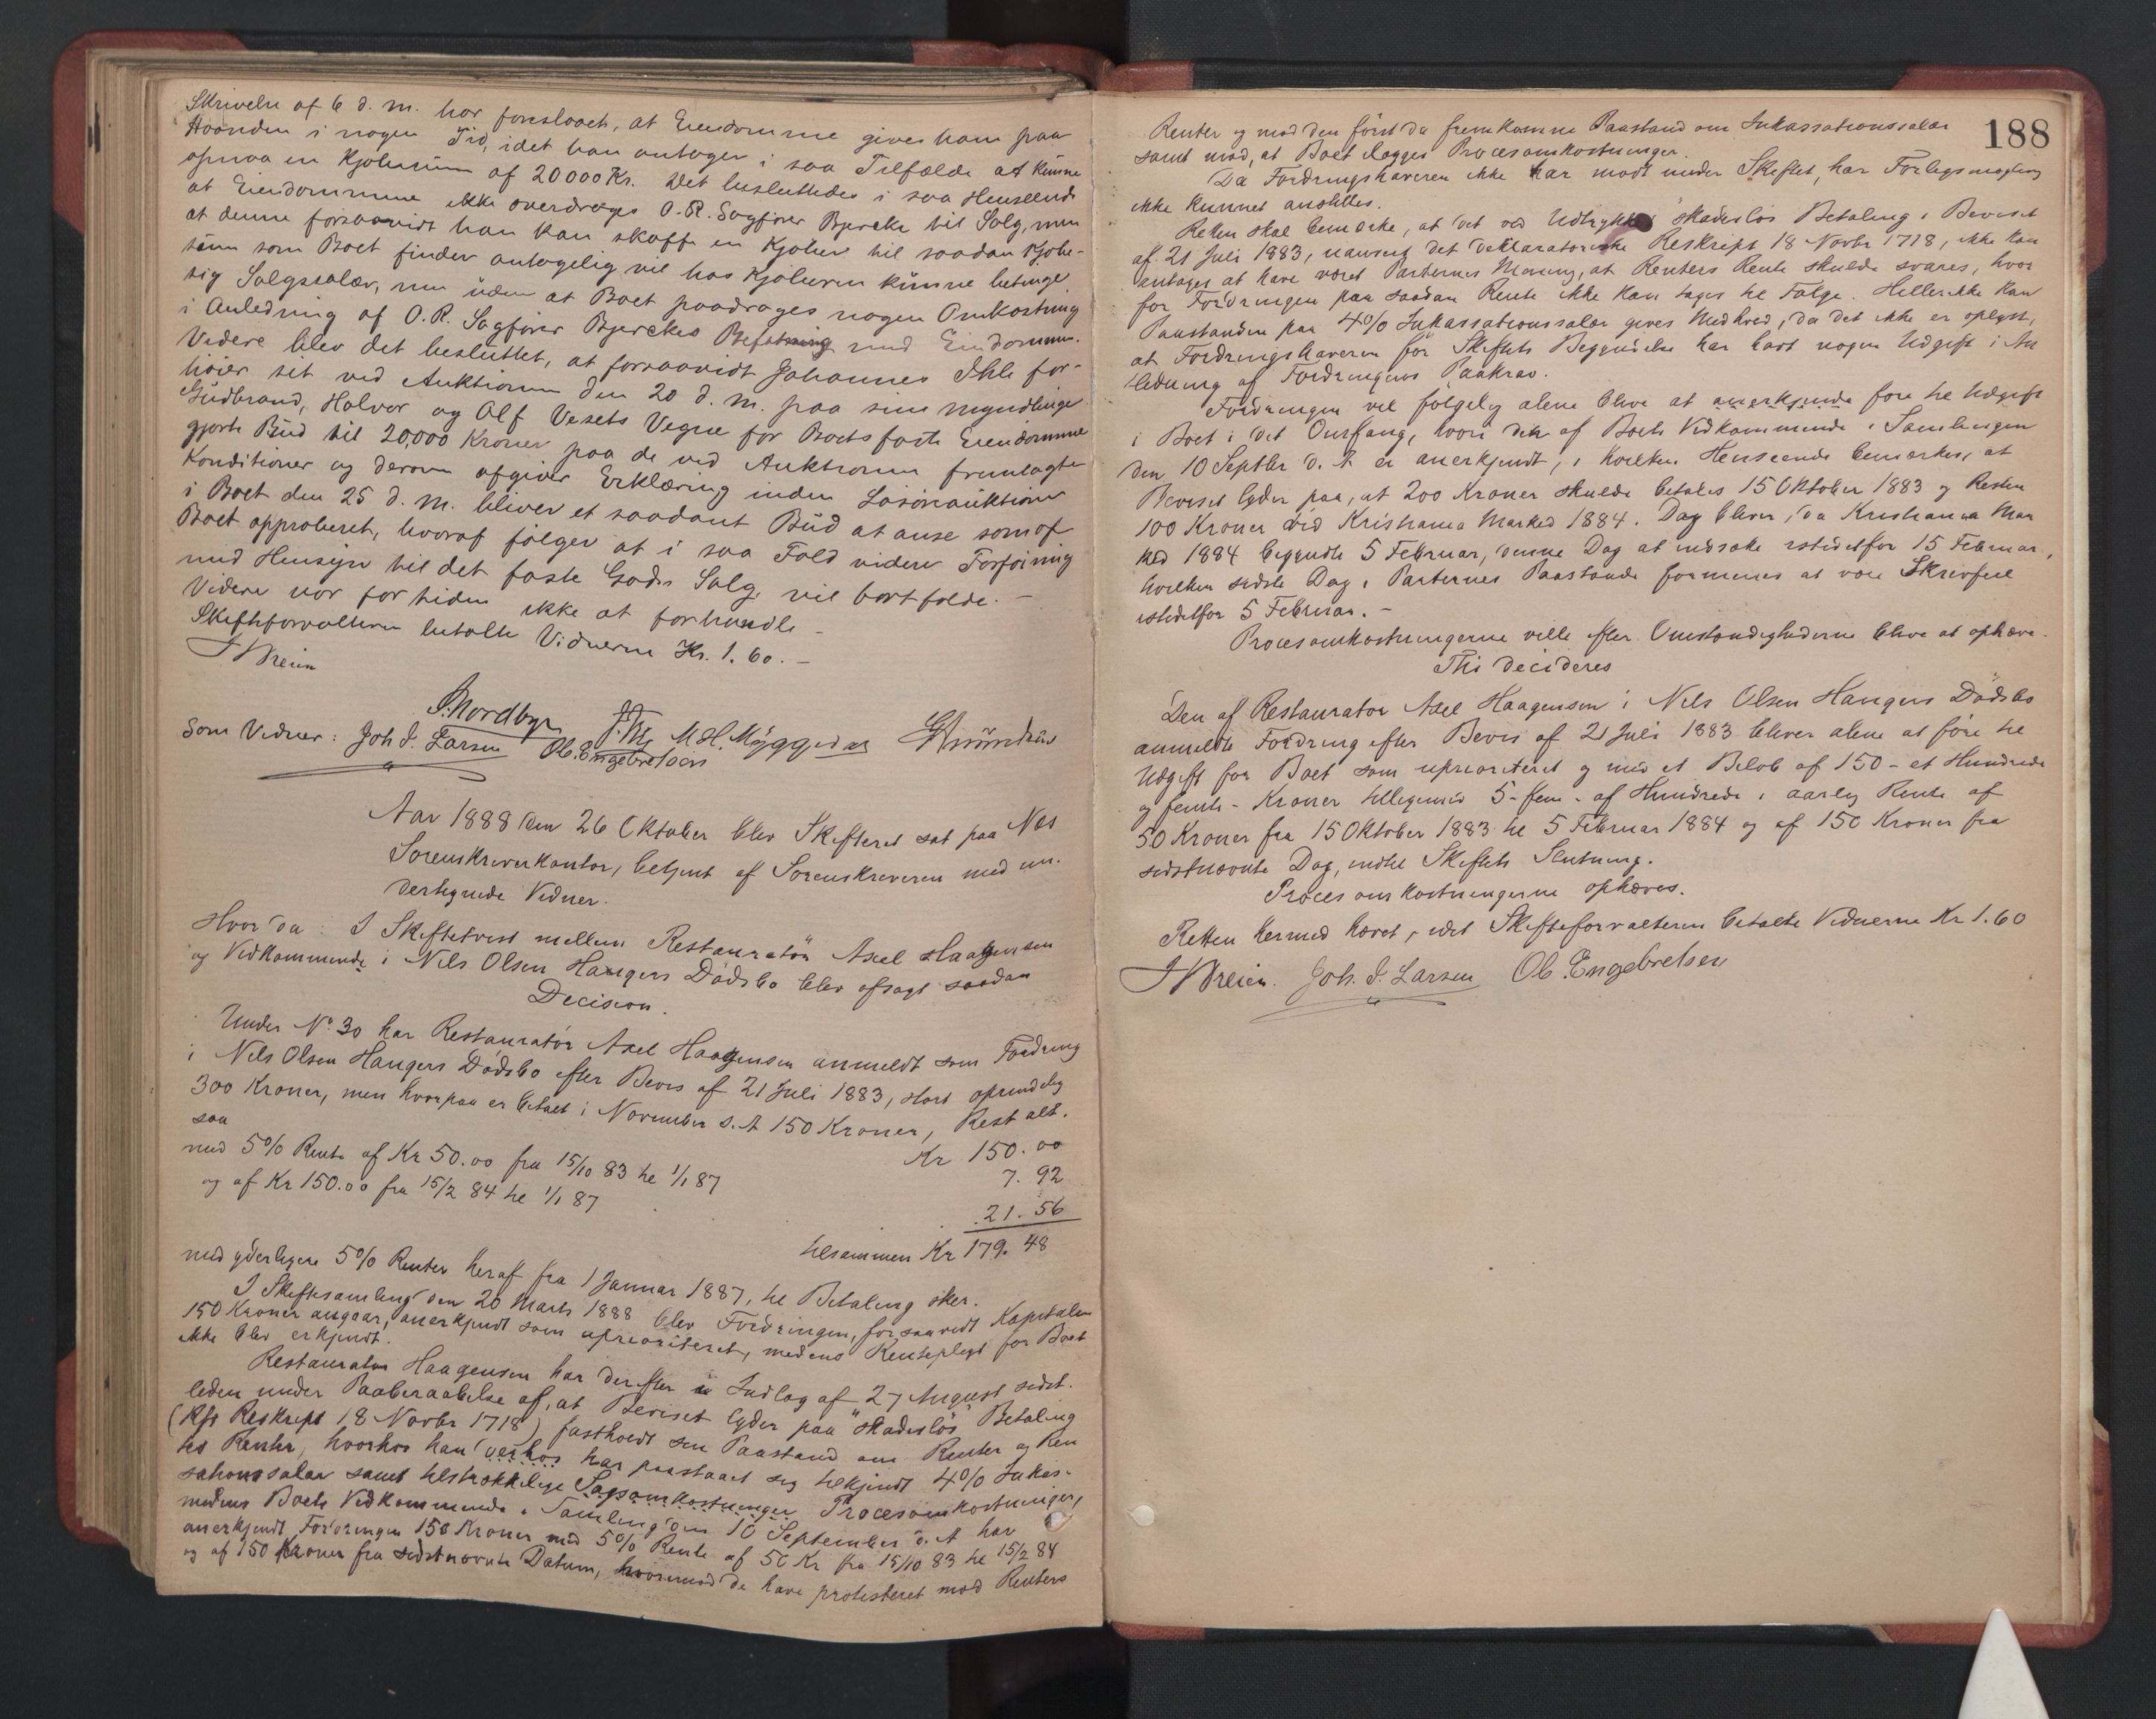 Skrivelse af 6 d. M. har foreslaaet, at Eiendommene gives ham paa
Haanden i nogen Tid, idet han antager i saa Tilfælde at kunne
opnaa en Kjøbesum af 20000 Kr. Det besluttedes i saa Henseende
at Eiendommene ikke overdrages O.R. Sagfører Bjercke til Salg, men
at denne forsaavidt han kan skaffe en Kjøber til saadan Kjøbe-
sum som Boet finder antagelig vil hos Kjøberen kunne betinge
sig Salgssalær, men uden at Boet paadrages nogen Omkostning
i Anledning af O.R. Sagfører Bjerckes Befatning med Eiendommen.
Videre blev det besluttet, at forsaavidt Johannes Ihle for-
høier sit ved Auktionen den 20 d. M. paa sine Myndlinge
Gudbrand, Halvor og Alf Vesets Vegne for Boets faste Eiendomme
gjorte Bud til 20,000 Kroner paa de ved Auktionen fremlagte
Konditioner og derom afgiver Erklæring inden Løsøreauktionen
i Boet den 25 d. M. bliver et saadant Bud at anse som af
Boet approberet, hvoraf følger at i saa Fald videre Forføining
med Hensyn til det faste Gods Salg vil bortfalde. –
Videre var for tiden ikke at forhandle –
Skifteforvalteren betalte Vidnerne Kr. 1.60. –
N Breien
S. Nordbye M.H. Myggedal
Som Vidner: Joh. I. Larsen Ol. Engebretsen
Aar 1888 den 26 Oktober blev Skifteret sat paa Nes
Sorenskriverkontor, betjent af Sorenskriveren med un-
dertegnede Vidner.
Hvor da: I Skiftetvist mellem Restauratør Axel Haagensen
og Vedkommende i Nils Olsen Haugers Dødsbo blev afsagt saadan
Decision.
Under No. 30 har Restauratør Axel Haagensen anmeldt som Fordring
i Nils Olsen Haugers Dødsbo efter Bevis af 21 Juli 1883, stort oprindelig
300 Kroner, men hvorpaa er betalt i November s. A 150 Kroner, Rest alt-
saa Kr 150.00
med 5% Rente af Kr 50.00 fra 15/10 83 til 1/1 87 7.92
og af Kr 150.00 fra 15/2 84 til 1/1 87 21.56
tilsammen Kr 179.48
med yderligere 5% Renter heraf fra 1 Januar 1887, til Betaling sker.
I Skiftesamling den 20 Marts 1888 blev Fordringen, forsaavidt Kapitalen
150 Kroner angaar, anerkjendt som uprioriteret, medens Rentepligt for Boet
ikke blev erkjendt.
Restauratør Haagensen har derefter i Indlæg af 27 August sidst-
leden under Paaberaabelse af, at Beviset lyder paa "skadesløs" Betaling
(Kfr Reskript 18 Novbr 1718) fastholdt sin Paastand om Renter og Ren
tes Renter, hvorhos han derhos har paastaaet sig tilkjendt 4% Inkas-
sationssalær samt tilstrækkelige Sagsomkostninger Procesomkostninger,
medens Boets Vedkommende i Samling den 10 September d. A har
anerkjendt Fordringen 150 Kroner med 5% Rente af 50 Kr fra 15/10 83 til 15/2 84
og af 150 Kroner fra sidstnævnte Datum, hvorimod de have protesteret mod Renters
188
Renter og mod den først da fremkomne Paastand om Inkassationssalær
samt mod, at Boet ilægges Procesomkostninger.
Da Fordringshaveren ikke har mødt under Skiftet, har Forligsmægling
ikke kunnet anstilles.
Retten skal bemærke, at det ved Udtrykket "skadesløs Betaling" i Beviset
af 21 Juli 1883, uanseet det deklaratoriske Reskript 18 Novbr 1718, ikke kan
antages at have været Parternes Mening, at Renters Rente skulde svares, hvor
for Fordringen paa saadan Rente ikke kan tages til Følge. Hellerikke kan
Paastanden paa 4% Inkassationssalær gives Medhold, da det ikke er oplyst,
at Fordringshaveren før Skiftets Begyndelse har havt nogen Udgift i An
ledning af Fordringens Paakrav.
Fordringen vil følgelig alene blive at anerkjende føre til Udgift
i Boet i det Omfang, hvori den af Boets Vedkommende i Samlingen
den 10 Septbr d. A. er anerkjendt, i hvilken Henseende bemærkes, at
Beviset lyder paa, at 200 Kroner skulde betales 15 Oktober 1883 og Resten
100 Kroner ved Kristiania Marked 1884. Dog bliver, da Kristiania Mar
ked 1884 begyndte 5 Februar, denne Dag at indsætte istedetfor 15 Februar,
hvilken sidste Dag i Parternes Paastande formenes at være Skrivfeil
istedetfor 5 Februar. –
Procesomkostningerne ville efter Omstændighederne blive at ophæve.
Thi decideres
Den af Restauratør Axel Haagensen i Nils Olsen Haugers Dødsbo
anmeldte Fordring efter Bevis af 21 Juli 1883 bliver alene at føre til
Udgift for Boet som uprioriteret og med et Beløb af 150 – et Hundrede
og femti – Kroner tilligemed 5 – fem – af Hundrede i aarlig Rente af
50 Kroner fra 15 Oktober 1883 til 5 Februar 1884 og af 150 Kroner fra
sidstnævnte Dag, indtil Skiftets Slutning.
Procesomkostningerne ophæves.
Retten hermed hævet, idet Skifteforvalteren betalte Vidnerne Kr 1.60
N Breien. Joh. I. Larsen Ol. Engebretsen